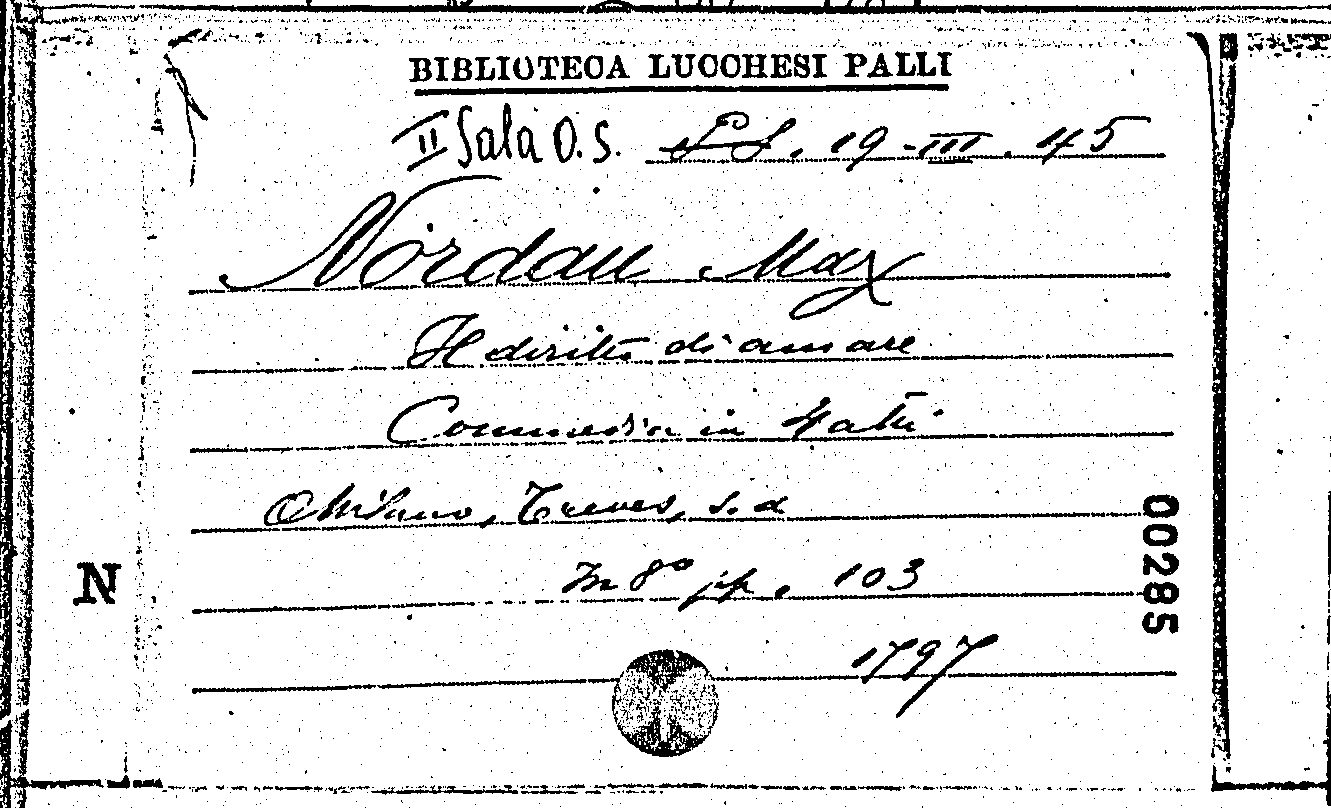 BIBLIOTECA LUCCHESI PALLI
II Sala O.S. 19-III.45
Nordau Max
Il diritto di amare
Commedia in 4 atti
Milano, Treves, s.d
In 8° pp. 103
1797
N
00285